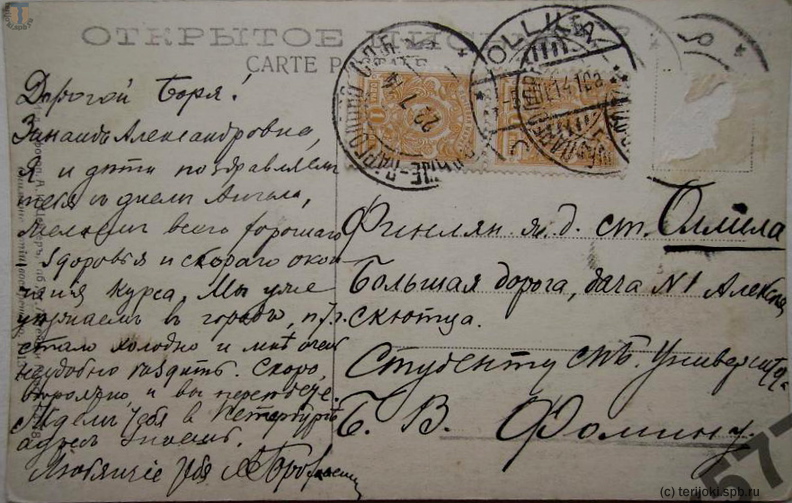 ОТКРЫТОЕ
CARTE
Дорогой Боря!
Зинаида Александровна,
я и дети поздравляем
тебя с днем Ангела,
желаем всего хорошаго
здоровья и скораго окон
чания курса. Мы уже
в городъ,
стало холодно и мнѣ очень
неудобно ѣздить. Скоро,
вѣроятно, и вы переѣдете.
Ждем тебя в Петербургѣ
адресъ знаешь.
Любящие тебя
Финлян. ж. д. ст. Оллила
Большая дорога, дача №1 Алекса
Студенту СПб. Университета
Б. В. Фомину
OLLILA
22 7
577
(c) terijoki.spb.ru